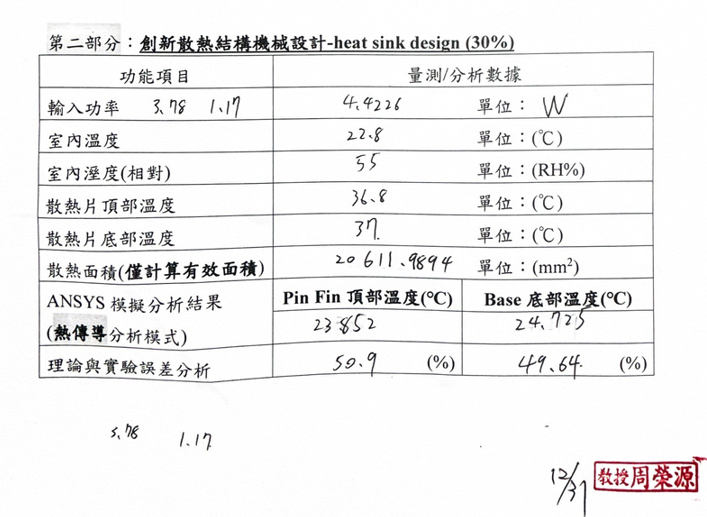 第二部分：創新散熱結構機械設計-heat sink design (30%)
功能項目 量測/分析數據
輸入功率 3.78 1.17 4.4226 單位： W
室內溫度 22.8 單位：(℃)
室內溼度(相對) 55 單位：(RH%)
散熱片頂部溫度 36.8 單位：(℃)
散熱片底部溫度 37. 單位：(℃)
散熱面積(僅計算有效面積) 20611.9894 單位：(mm²)
ANSYS 模擬分析結果 Pin Fin 頂部溫度(℃) Base 底部溫度(℃)
(熱傳導分析模式) 23.852 24.725
理論與實驗誤差分析 50.9 (%) 49.64 (%)
3.78 1.17
12/31 教授周榮源